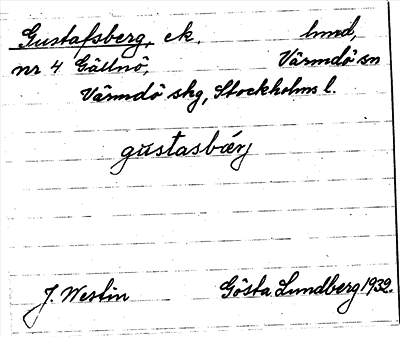 Gustafsberg, ek. lmd,
nr 4 Gällnö, Värmdö sn
Värmdö skg, Stockholms l.
gustasbærj
J. Westin Gösta Lundberg 1932.